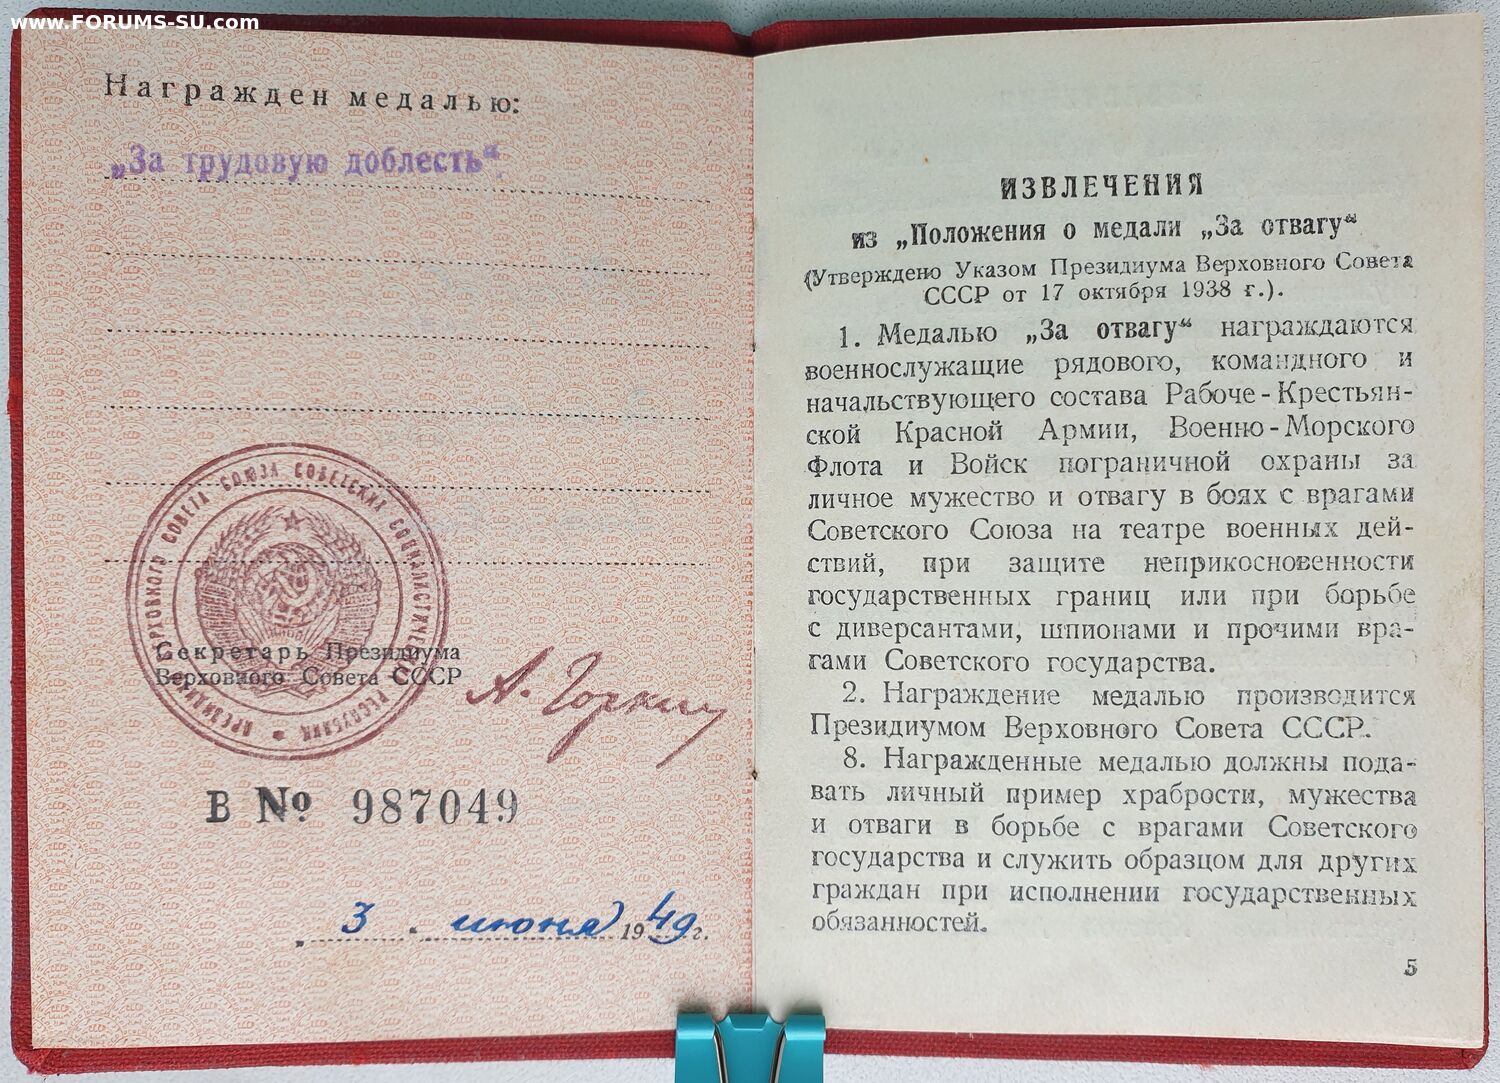 www.FORUMS-SU.com
Награжден медалью:
„За трудовую доблесть“
ПРЕЗИДИУМ ВЕРХОВНОГО СОВЕТА СОЮЗА СОВЕТСКИХ СОЦИАЛИСТИЧЕСКИХ РЕСПУБЛИК
Секретарь Президиума
Верховного Совета СССР
А. Горкин
В № 987049
3 июня 1949 г.
ИЗВЛЕЧЕНИЯ
из „Положения о медали „За отвагу“
(Утверждено Указом Президиума Верховного Совета
СССР от 17 октября 1938 г.).
1. Медалью „За отвагу“ награждаются
военнослужащие рядового, командного и
начальствующего состава Рабоче-Крестьян-
ской Красной Армии, Военно-Морского
Флота и Войск пограничной охраны за
личное мужество и отвагу в боях с врагами
Советского Союза на театре военных дей-
ствий, при защите неприкосновенности
государственных границ или при борьбе
с диверсантами, шпионами и прочими вра-
гами Советского государства.
2. Награждение медалью производится
Президиумом Верховного Совета СССР.
8. Награжденные медалью должны пода-
вать личный пример храбрости, мужества
и отваги в борьбе с врагами Советского
государства и служить образцом для других
граждан при исполнении государственных
обязанностей.
5